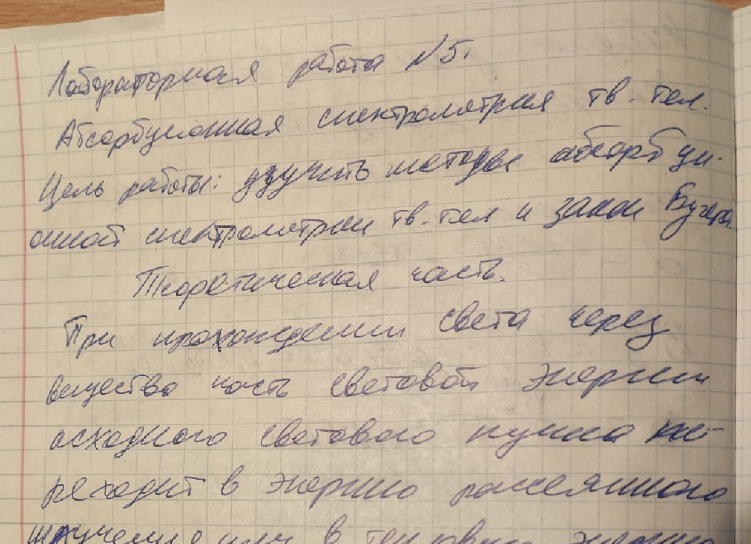 Лабораторная работа №5.
Абсорбционная спектрометрия тв. тел.
Цель работы: изучить методы абсорбци-
онной спектрометрии тв. тел и закон Бугера.
Теоретическая часть.
При прохождении света через
вещество часть световой энергии
исходного светового пучка пе-
реходит в энергию рассеянного
излучения или в тепловую энергию